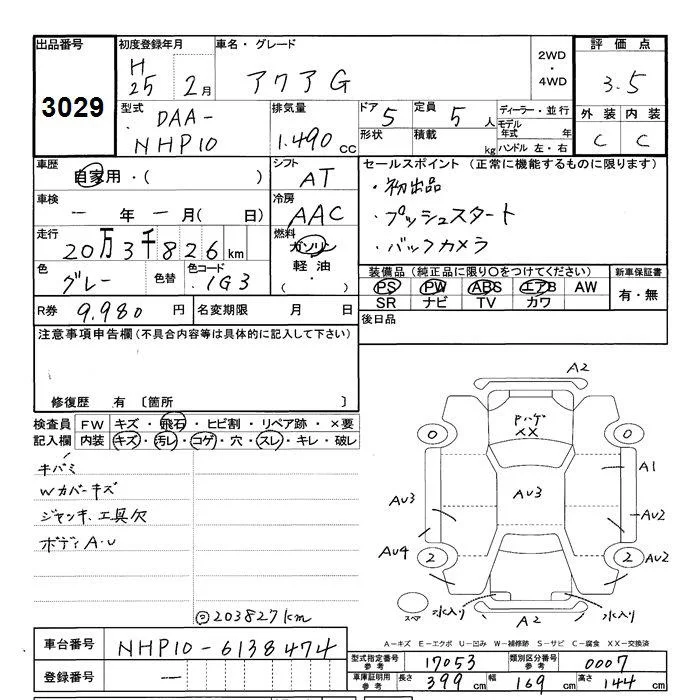 出品番号 3029
初度登録年月 H25 2月
車名・グレード アクア G
2WD・4WD
評価点 3.5
型式 DAA-NHP10
排気量 1.490 cc
ドア 5
形状
定員 5人
積載 kg
ディーラー・並行
モデル年式 年
ハンドル 左・右
外装 C
内装 C
車歴 自家用・( )
シフト AT
車検 ー年ー月( 日)
冷房 AAC
走行 20万3千826km
燃料 ガソリン 軽油・( )
色 グレー
色替
色コード 1G3
R券 9.980円
名変期限 月 日
セールスポイント(正常に機能するものに限ります)
・初出品
・プッシュスタート
・バックカメラ
装備品(純正品に限り○をつけてください)
PS PW ABS エアB AW
SR ナビ TV カワ
新車保証書 有・無
後日品
注意事項申告欄(不具合内容等は具体的に記入して下さい)
修復歴 有〔箇所 〕
検査員記入欄
FW キズ・飛石・ヒビ割・リペア跡・×要
内装 キズ・汚レ・コゲ・穴・スレ・キレ・破レ
キバミ
Wカバーキズ
ジャッキ、工具欠
ボディA・U
203827km
A2
Pハゲ
XX
0
0
A1
AU3
AU3
AU2
AU4
2
2
AU2
スペア
水入り
A2
水入り
A－キズ E－エクボ U－凹み W－補修跡 S－サビ C－腐食 XX－交換済
車台番号 NHP10-6138474
登録番号 ー
型式指定番号 参考 17053
類別区分番号 参考 0007
車庫証明用 参考 長さ 399cm 幅 169cm 高さ 144cm